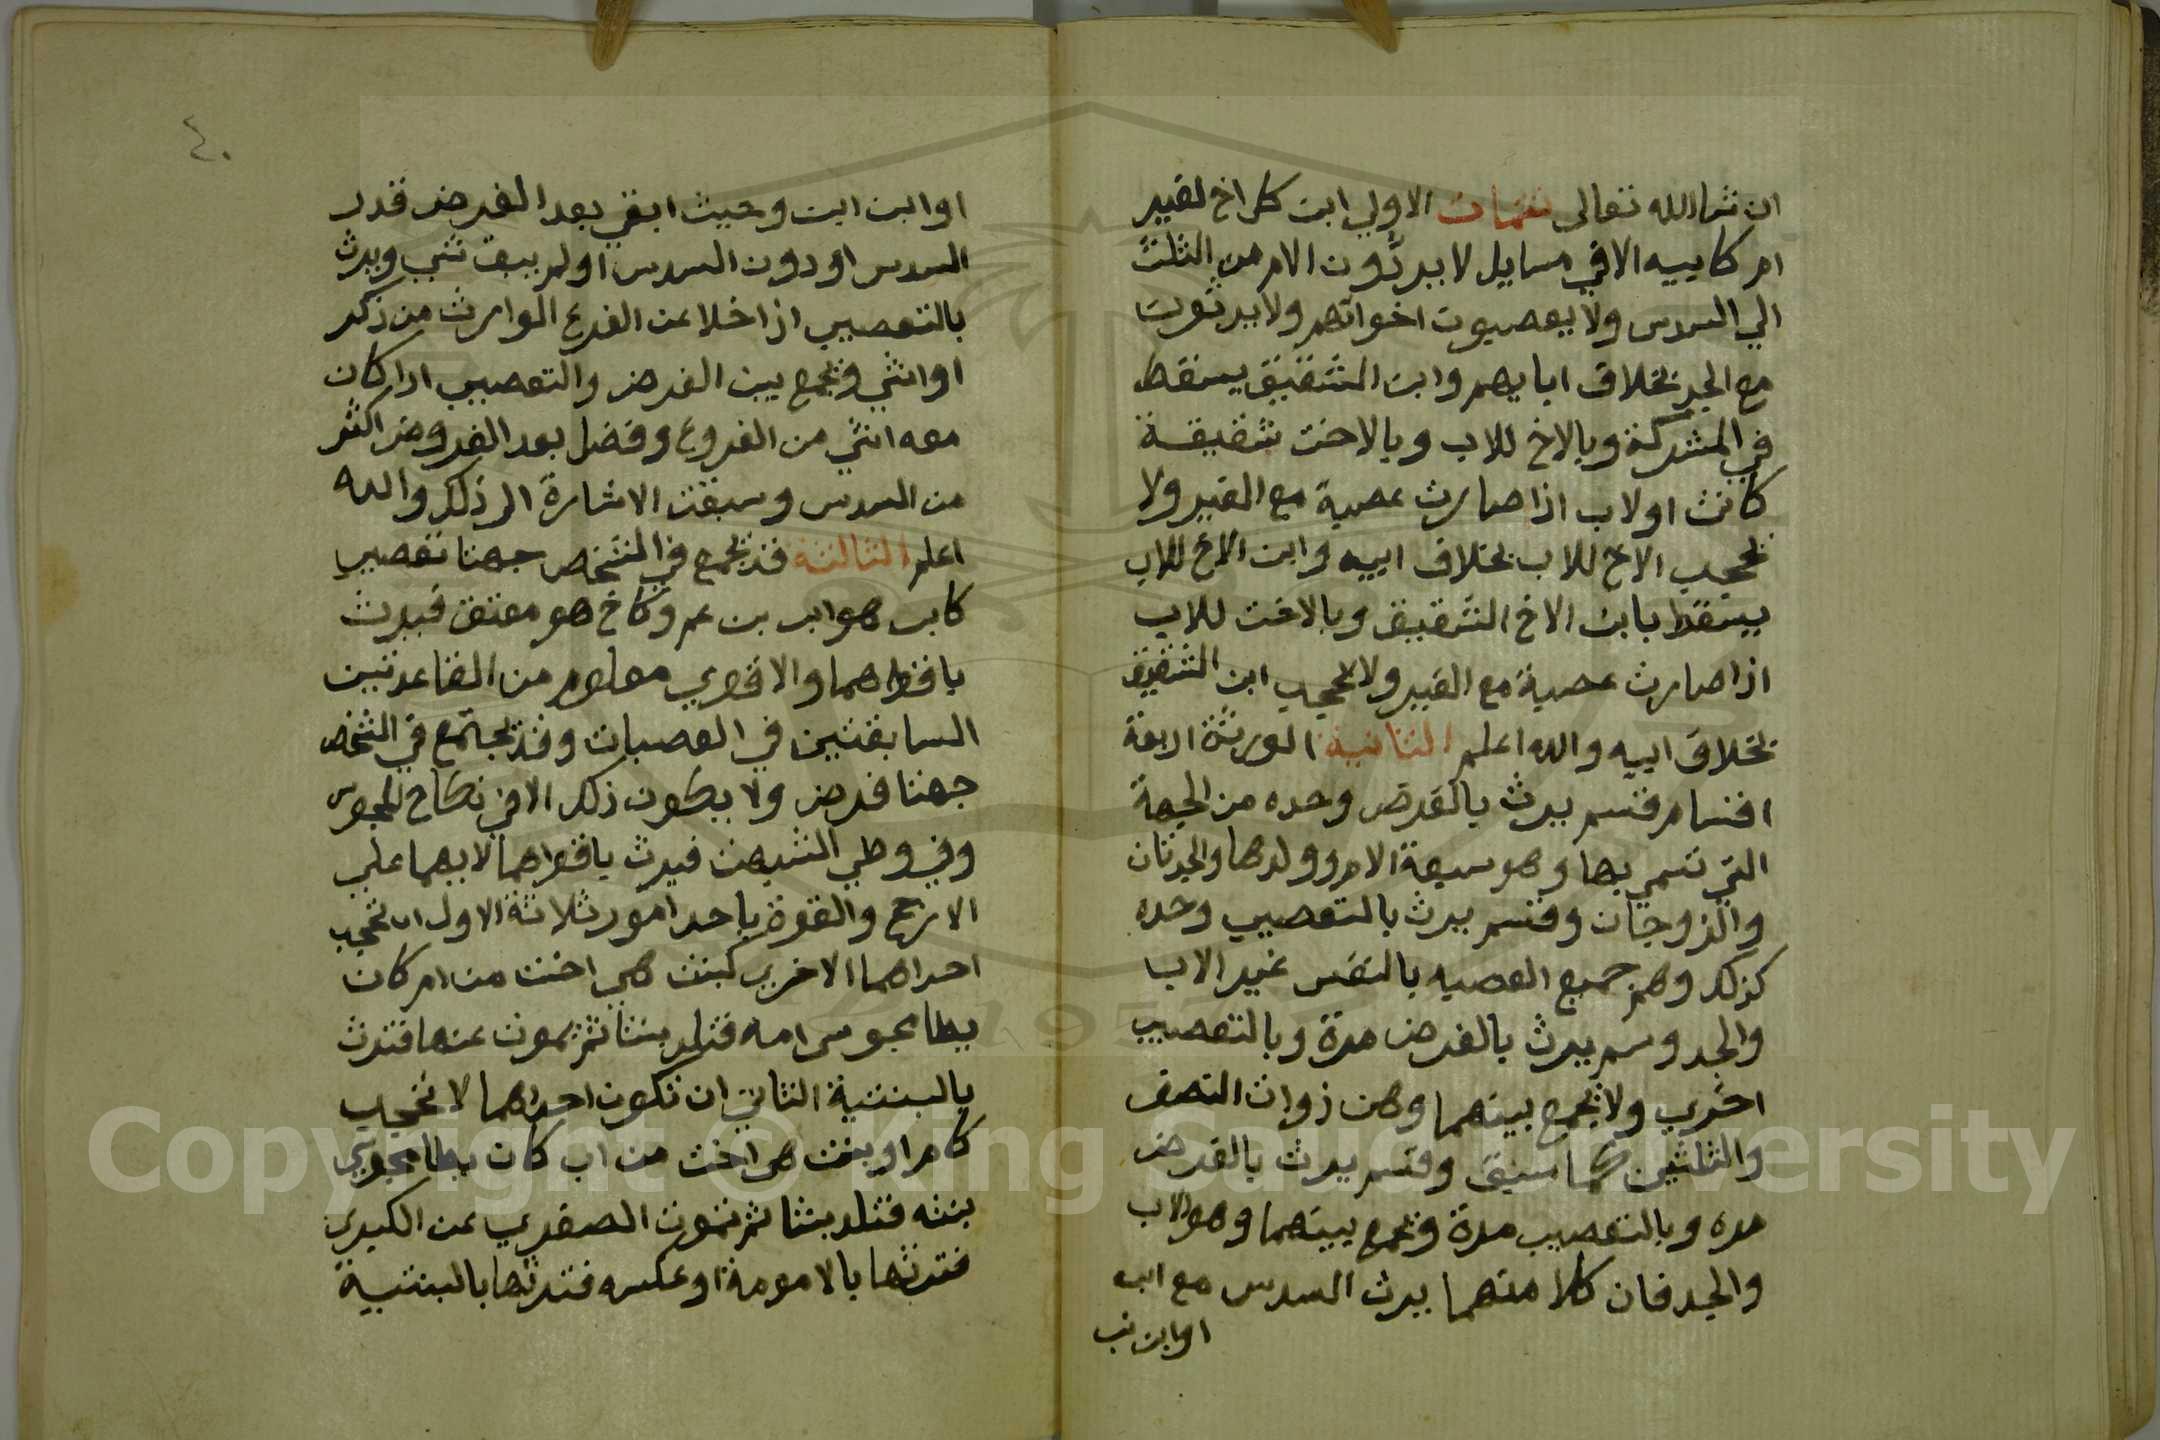 ان شاالله تعالى تتمات الاولي ابن كل اخ لغير
ام كابيه الا في مسايل لا يردون الام من الثلث
الي السدس ولا يعصبون اخواتهم ولا يرثون
مع الجد بخلاف ابايهم وابن الشقيق يسقط
في المشركة وبالاخ للاب وبالاخت شقيقة
كانت اولاب اذا صارت عصبة مع الغير ولا
يحجب الاخ للاب بخلاف ابيه وابن الاخ للاب
يسقط بابن الاخ الشقيق وبالاخت للاب
اذا صارت عصبة مع الغير ولا يحجب ابن الشقيق
بخلاف ابيه والله اعلم الثانية الورثة اربعة
اقسام قسم يرث بالفرض وحده من الجهة
التي تسمي بها وهو سبعة الام وولدها والجدتان
والزوجان وقسم يرث بالتعصيب وحده
كذلك وهم جميع العصبه بالنفس غير الاب
والجد وسم يرث بالفرض مرة وبالتعصيب
اخري ولا يجمع بينهما وهن ذوات النصف
والثلثين كما سبق وقسم يرث بالفرض
مره وبالتعصيب مرة ويجمع بينهما وهو الاب
والجد فان كلا منهما يرث السدس مع ابن
اوابن
٤٠
او ابن ابن وحيث ابقي بعد الفرض قدر
السدس او دون السدس اولم يبق شي ويرث
بالتعصيب اذا خلا عن الفرع الوارث من ذكر
او انثي ويجمع بين الفرض والتعصيب اذا كان
معه انثي من الفروع وفضل بعد الفروض اكثر
من السدس وسبقت الاشارة الى ذلك والله
اعلم الثالثة قد يجمع في الشخص جهتا تعصيب
كابن هو ابن بن عم وكاخ هو معتق فيرث
باقواهما والاقوي معلوم من القاعدتين
السابقتين في العصبات وقد يجتمع في الشخص
جهتا فرض ولا يكون ذلك الا في نكاح المجوس
وفي وطي الشبهة فيرث باقواهما لا بهما علي
الارجح والقوة باحد امور ثلاثة الاول ان تحجب
احداهما الاخري كبنت هي اخت من ام كان
يطا مجوسي امه فتلد بنتا ثم يموت عنها فترث
بالبنتية الثاني ان تكون احداهما لا تحجب
كام او بنت هي اخت من اب كان يطا مجوسي
بنته فتلد بنتا ثم تموت الصغري عن الكبري
فترثها بالامومة او عكسه فترثها بالبنتية
Copyright © King Saud University
1957